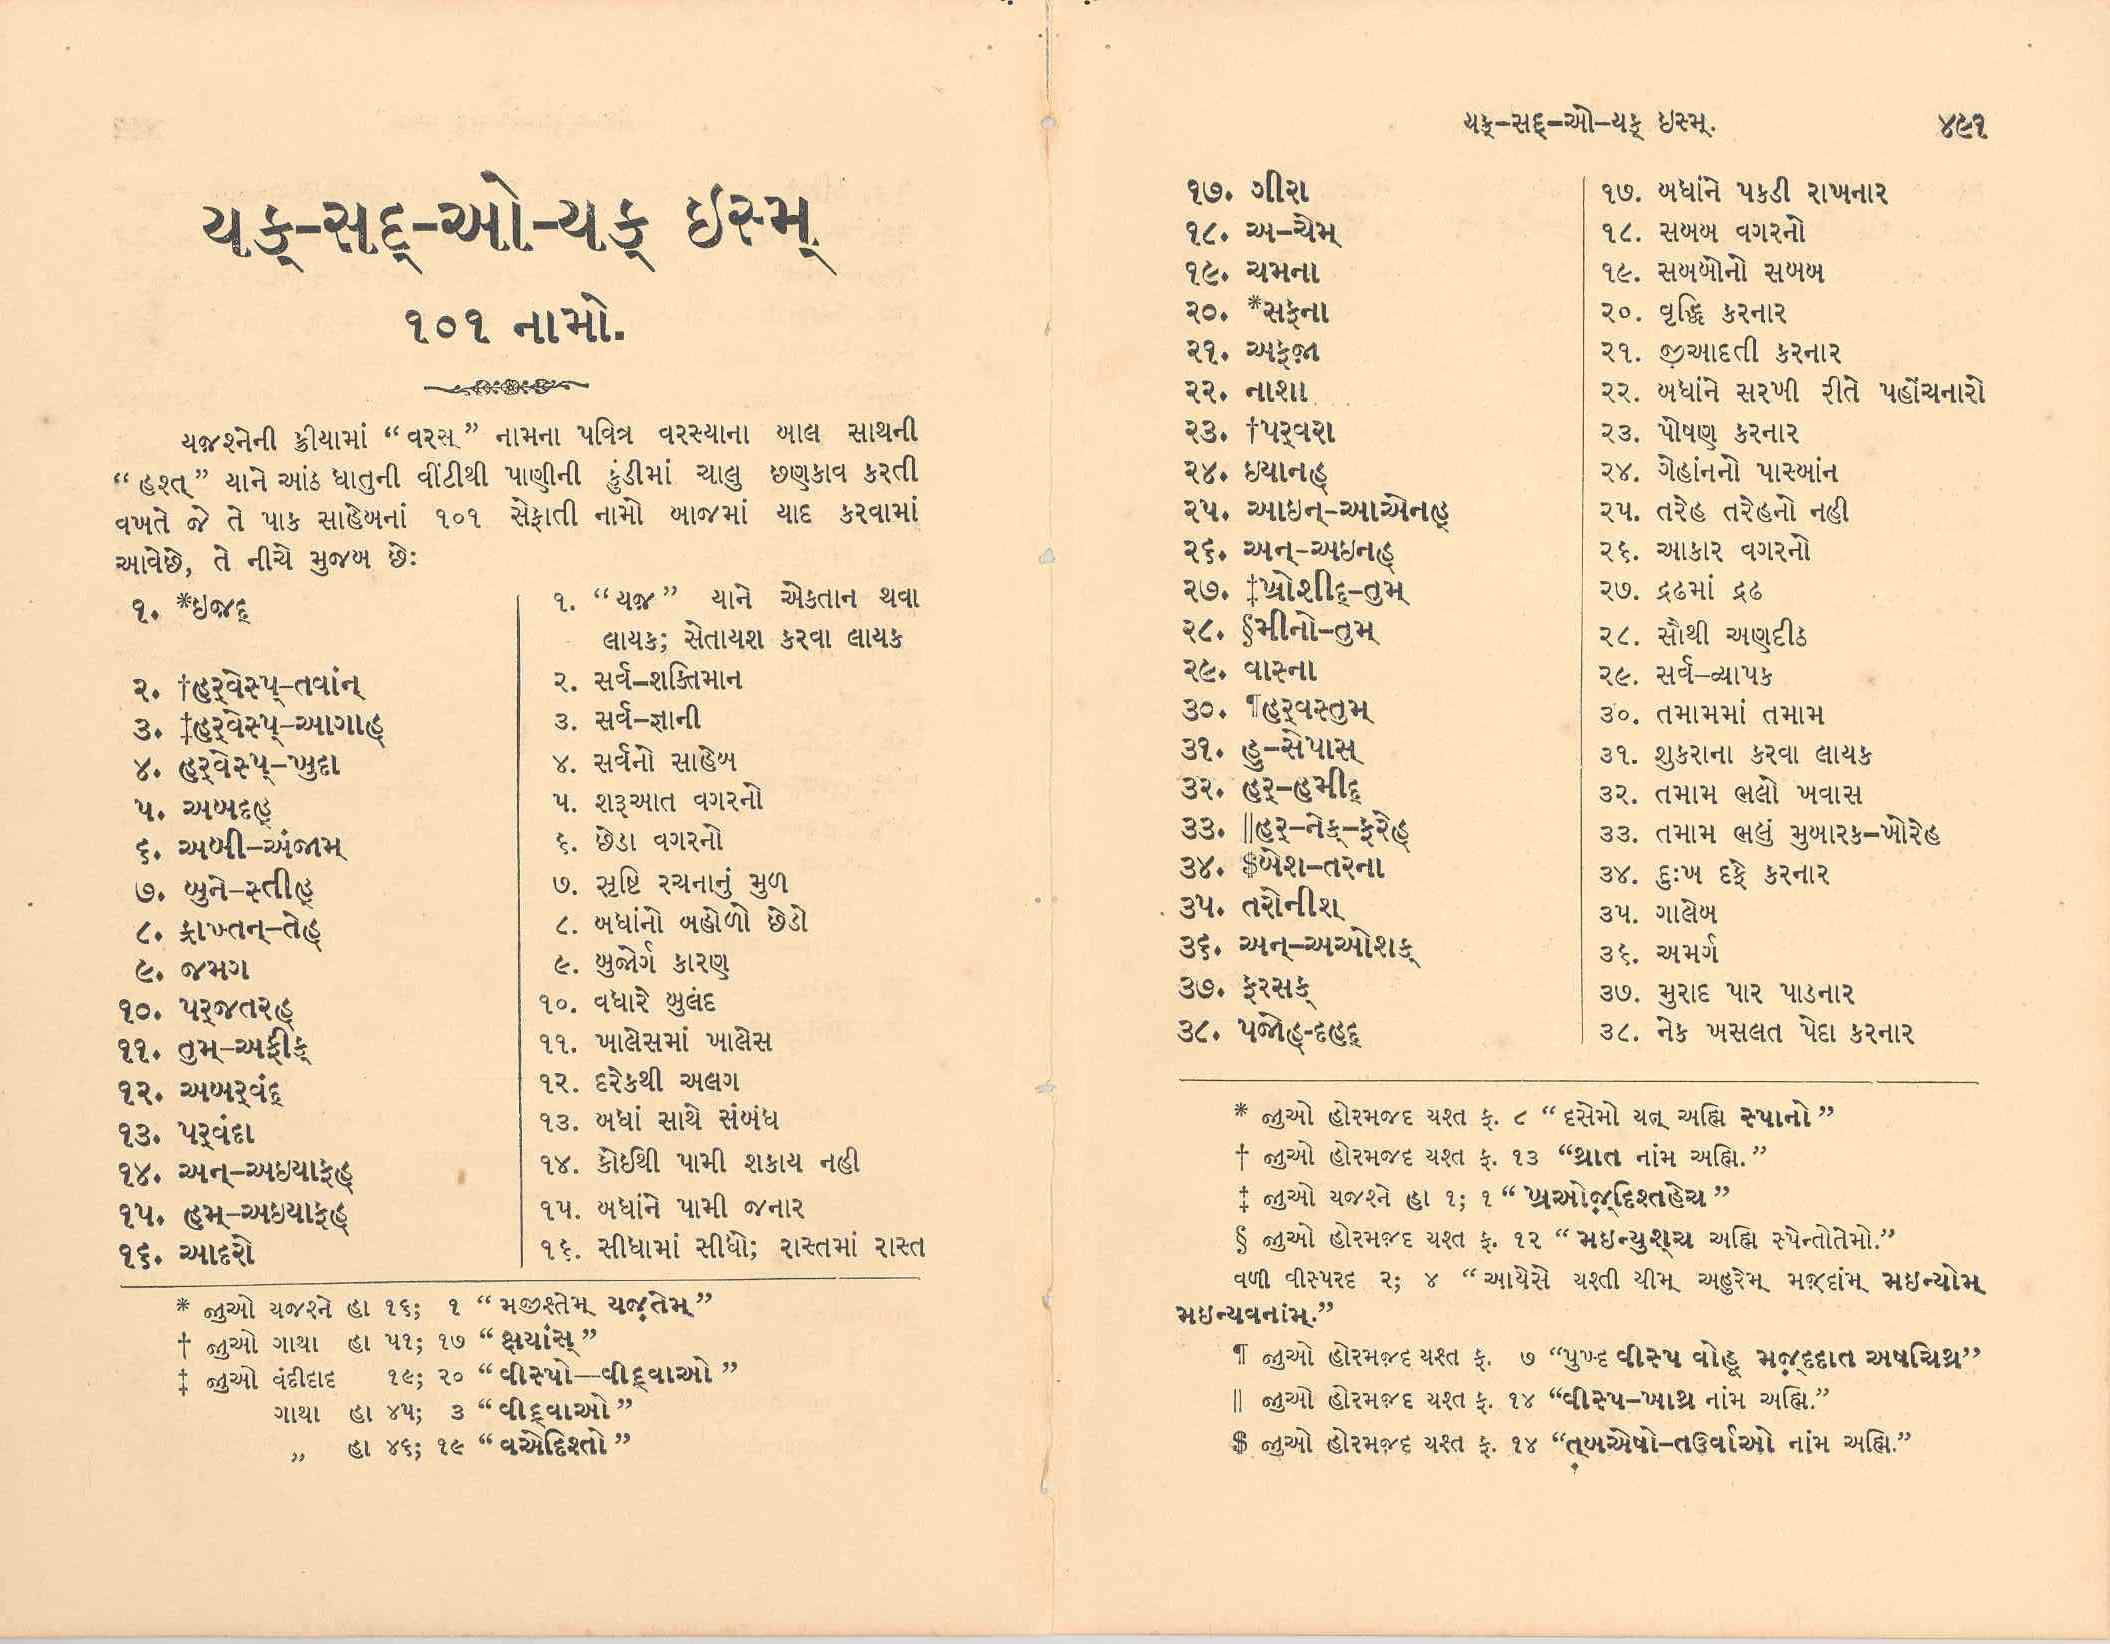 યક્-સદ્-ઓ-યક્ ઇસ્મ્
૧૦૧ નામો.
યજ઼શ્નેની ક્રીયામાં “વરસ્” નામના પવિત્ર વરસ્યાના બાલ સાથની
“હશ્ત્” યાને આંઠ ધાતુની વીંટીથી પાણીની કુંડીમાં ચાલુ છણકાવ કરતી
વખતે જે તે પાક સાહેબનાં ૧૦૧ સેફાતી નામો બાજમાં યાદ કરવામાં
આવેછે, તે નીચે મુજબ છેઃ
૧. *ઇજ઼દ્ ૧. “યજ઼” યાને એકતાન થવા
લાયક; સેતાયશ કરવા લાયક
૨. †હર્વેસ્પ્-તવાંન્ ૨. સર્વ-શક્તિમાન
૩. ‡હર્વેસ્પ્-આગાહ્ ૩. સર્વ-જ્ઞાની
૪. હર્વેસ્પ્-ખુદા ૪. સર્વનો સાહેબ
૫. અબદહ્ ૫. શરૂઆત વગરનો
૬. અબી-અંજામ્ ૬. છેડા વગરનો
૭. બુને-સ્તીહ્ ૭. સૃષ્ટિ રચનાનું મુળ
૮. ફ્રાખ્તન્-તેહ્ ૮. બધાંનો બહોળો છેડો
૯. જમગ ૯. બુજોર્ગ કારણ
૧૦. પર્જતરહ્ ૧૦. વધારે બુલંદ
૧૧. તુમ્-અફીક્ ૧૧. ખાલેસમાં ખાલેસ
૧૨. અબર્વંદ્ ૧૨. દરેકથી અલગ
૧૩. પર્વંદા ૧૩. બધાં સાથે સંબંધ
૧૪. અન્-અઇયાફહ્ ૧૪. કોઈથી પામી શકાય નહી
૧૫. હમ્-અઇયાફહ્ ૧૫. બધાંને પામી જનાર
૧૬. આદરો ૧૬. સીધામાં સીધો; રાસ્તમાં રાસ્ત
* જીુઓ યજશ્ને હા ૧૬; ૧ “મજીશ્તેમ્ યજ઼તેમ્”
† જીુઓ ગાથા હા ૫૧; ૧૭ “ક્ષયાંસ્”
‡ જીુઓ વંદીદાદ ૧૯; ૨૦ “વીસ્પો—વીદ્વાઓ”
ગાથા હા ૪૫; ૩ “વીદ્વાઓ”
„ હા ૪૬; ૧૯ “વએદિશ્તો”
યક્-સદ્-ઓ-યક્ ઇસ્મ્. ૪૯૧
૧૭. ગીરા ૧૭. બધાંને પકડી રાખનાર
૧૮. અ-ચૈમ્ ૧૮. સબબ વગરનો
૧૯. ચમના ૧૯. સબબોનો સબબ
૨૦. *સફના ૨૦. વૃદ્ધિ કરનાર
૨૧. અફ્જ઼ા ૨૧. જ઼ીઆદતી કરનાર
૨૨. નાશા ૨૨. બધાંને સરખી રીતે પહોંચનારો
૨૩. †પર્વરા ૨૩. પોષણ કરનાર
૨૪. ઇયાનહ્ ૨૪. ગેહાંનનો પાસ્બાંન
૨૫. આઇન્-આએનહ્ ૨૫. તરેહ તરેહનો નહી
૨૬. અન્-અઇનહ્ ૨૬. આકાર વગરનો
૨૭. ‡ખ્રોશીદ્-તુમ્ ૨૭. દ્રઢમાં દ્રઢ
૨૮. §મીનો-તુમ્ ૨૮. સૌથી અણદીઠ
૨૯. વાસ્ના ૨૯. સર્વ-વ્યાપક
૩૦. ¶હર્વસ્તુમ્ ૩૦. તમામમાં તમામ
૩૧. હુ-સેપાસ્ ૩૧. શુકરાના કરવા લાયક
૩૨. હર્-હમીદ્ ૩૨. તમામ ભલો ખવાસ
૩૩. ‖હર્-નેક્-ફરેહ્ ૩૩. તમામ ભલું મુબારક-ખોરેહ
૩૪. $બેશ-તરના ૩૪. દુઃખ દફે કરનાર
૩૫. તરોનીશ્ ૩૫. ગાલેબ
૩૬. અન્-અઓશક્ ૩૬. અમર્ગ
૩૭. ફરસક્ ૩૭. મુરાદ પાર પાડનાર
૩૮. પજોહ્-દહદ્ ૩૮. નેક ખસલત પેદા કરનાર
* જીુઓ હોરમજ઼દ યશ્ત ફ. ૮ “દસેમો યત્ અહ્મિ સ્પાનો”
† જીુઓ હોરમજ઼દ યશ્ત ફ. ૧૩ “થ્રાત નાંમ અહ્મિ.”
‡ જીુઓ યજશ્ને હા ૧; ૧ “ખ્રઓજ઼્દિશ્તહેચ”
§ જીુઓ હોરમજ઼દ યશ્ત ફ. ૧૨ “મઇન્યુશ્ચ અહ્મિ સ્પેન્તોતેમો.”
વળી વીસ્પરદ ૨; ૪ “આયેસે યશ્તી ચીમ્ અહુરેમ્ મજ઼દાંમ્ મઇન્યોમ્
મઇન્યવનાંમ્.”
¶ જીુઓ હોરમજ઼દ યશ્ત ફ. ૭ “પુખ્દ વીસ્પ વોહૂ મજ઼્દદાત અષચિથ્ર”
‖ જીુઓ હોરમજ઼દ યશ્ત ફ. ૧૪ “વીસ્પ-ખાથ્ર નાંમ અહ્મિ.”
$ જીુઓ હોરમજ઼દ યશ્ત ફ. ૧૪ “ત્બએષો-તઉર્વાઓ નાંમ અહ્મિ.”